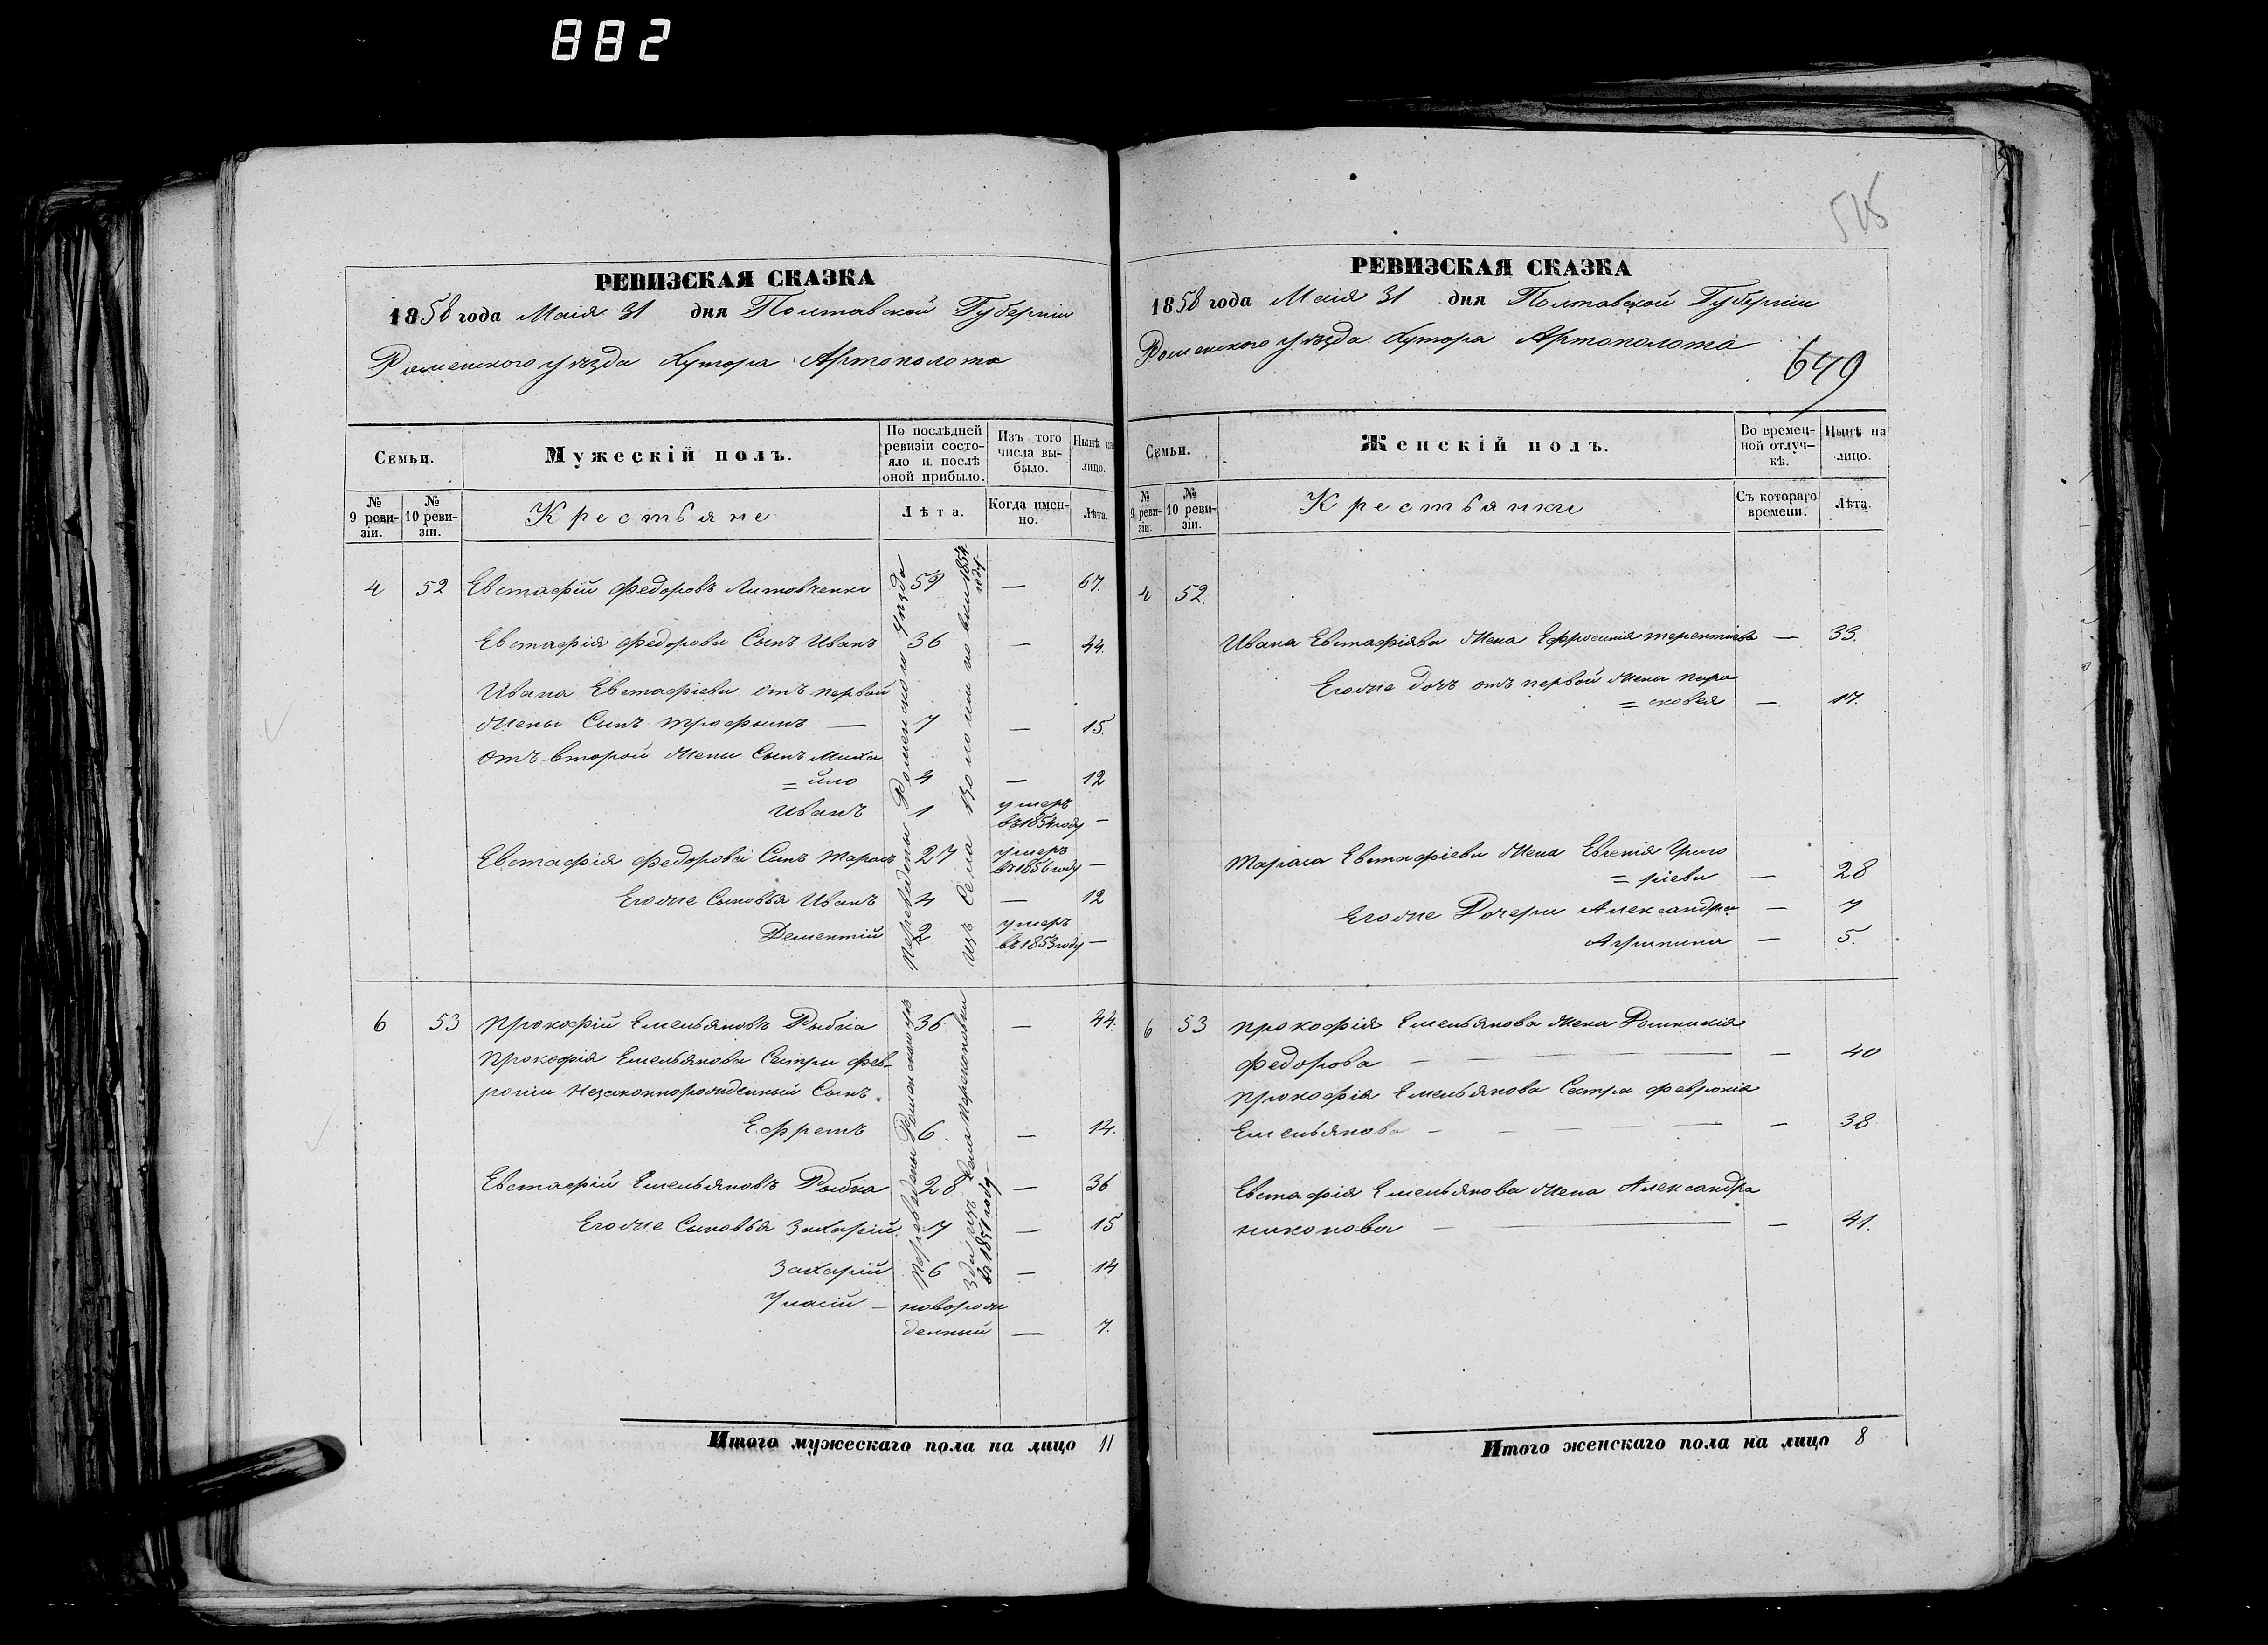 882
РЕВИЗСКАЯ СКАЗКА
1858 года Маія 31 дня Полтавской Губерніи
Роменского уѣзда Хутора Артополота
Семьи.
Мужескій полъ.
По послѣдней ревизіи состояло и послѣ оной прибыло.
Изъ того числа выбыло.
Нынѣ на лицо.
№ 9 ревизіи.
№ 10 ревизіи.
Крестьяне
Лѣта.
Когда имен-но.
Лѣта.
4 52 Евстафій Федоровъ Литовченко 59 — 67.
Евстафія Федорова Сынъ Иванъ 36 — 44.
Ивана Евстафіева отъ первой
жены Сынъ Трофимъ — 7 — 15.
отъ второй жены Сынъ Миха
= йло 4 — 12
Иванъ 1 умеръ
въ 1854 году —
Евстафія Федорова Сынъ Тарасъ 27 умеръ
въ 1856 году —
Егоже Сыновья Иванъ 4 — 12
Дементій 2 умеръ
въ 1853 году —
переведены Роменского уѣзда
изъ села
1854
году
6 53 Прокофій Емельяновъ Рыбка 36 — 44.
Прокофія Емельянова Сестры Фев-
роніи Незаконнорожденный Сынъ
Ефремъ 6. — 14.
Евстафій Емельяновъ Рыбка 28 — 36
Егоже Сыновья Захарій 7 — 15
Захарій 6 — 14
Уласій — новорож
денный — 7.
переведены Роменского уѣ
зда изъ села Перекоповки
въ 1851 году
Итого мужескаго пола на лицо 11
515
РЕВИЗСКАЯ СКАЗКА
1858 года Маія 31 дня Полтавской Губерніи
Роменского уѣзда Хутора Артополота
649
Семьи.
Женскій полъ.
Во времен-ной отлуч-кѣ.
Нынѣ на лицо.
№ 9 ревизіи.
№ 10 ревизіи.
Крестьянки
Съ котораго времени.
Лѣта.
4 52.
Ивана Евстафіева жена Ефросинія Терентіева — 33.
Егоже дочь отъ первой жены Пара
= сковея — 17.
Тараса Евстафіева жена Евгенія Григо
= ріева — 28
Егоже Дочери Александра — 7
Агрипина — 5.
6 53 Прокофія Емельянова жена Домникія
Федорова — — 40
Прокофія Емельянова Сестра Февронія
Емельянова — — 38
Евстафія Емельянова жена Александра
Никонова — — 41.
Итого женскаго пола на лицо 8